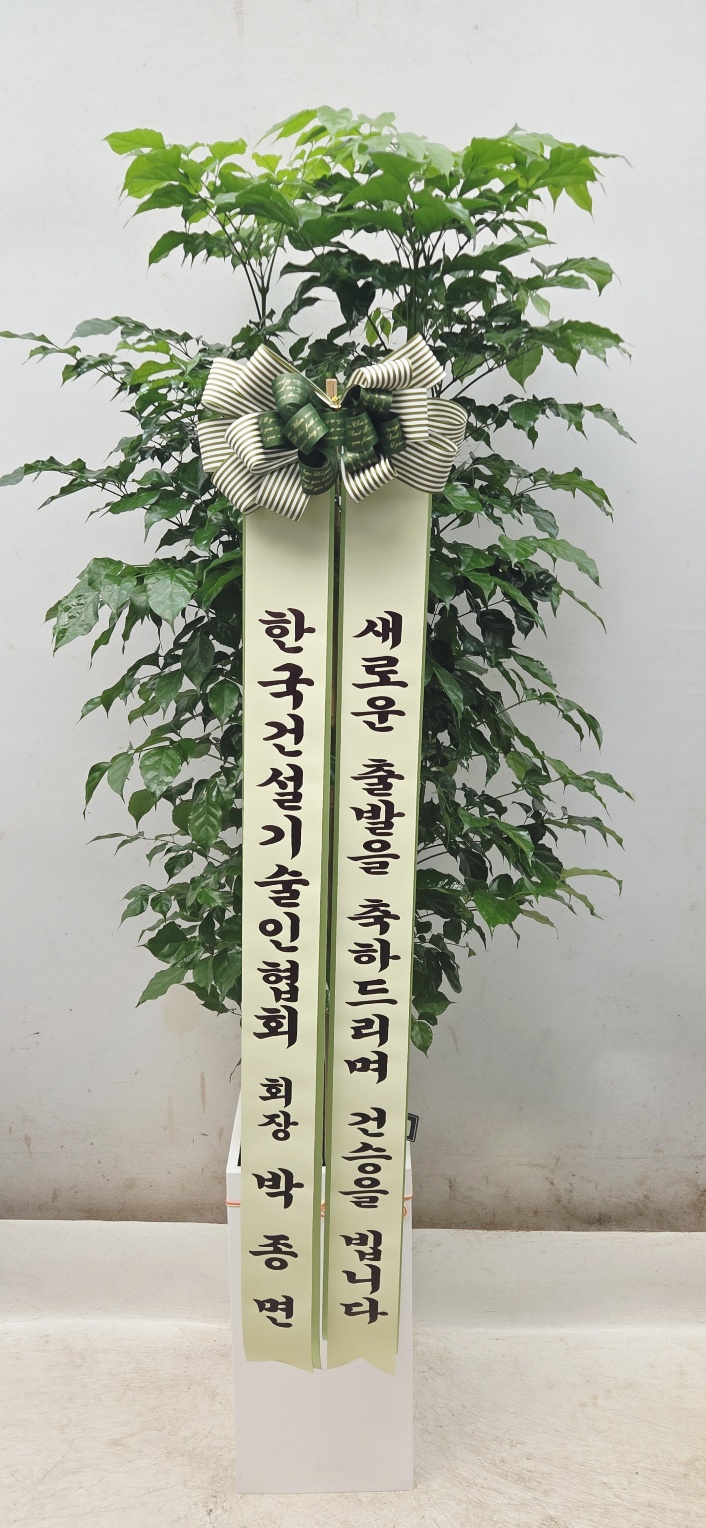 새로운 출발을 축하드리며 건승을 빕니다
한국건설기술인협회 회장 박종면